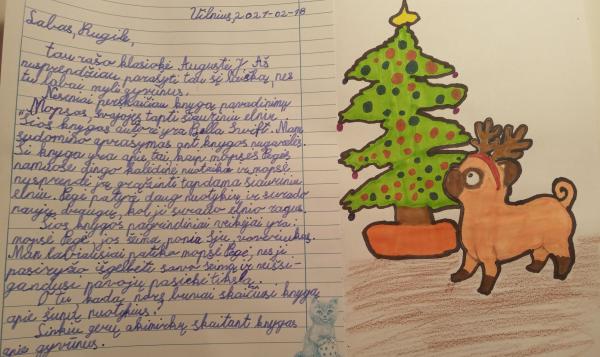 Vilnius, 2021-02-18
Labas, Rugile,
tau rašo klasiokė Augustė J. Aš
nusprendžiau parašyti tau šį laišką, nes
tu labai myli gyvūnus.
Neseniai perskaičiau knygą pavadinimu
„Mopsas, svajojęs tapti šiaurės elniu".
Šios knygos autorė yra Bella Swift. Mane
sudomino aprašymas ant knygos nugarėlės.
Ši knyga yra apie tai, kaip mopsės Pegės
namuose dingo kalėdinė nuotaika ir mopsė
nusprendė ją grąžinti tapdama šiaurės
elniu. Pegė patyrė daug nuotykių ir surado
naujų draugų, kol ji surado elnio ragus.
Šios knygos pagrindiniai veikėjai yra:
mopsė Pegė, jos šeima, ponia
Man labiausiai patiko mopsė Pegė, nes ji
pasiryžo išgelbėti savo šeimą ir neišsi-
gandusi pavojų pasiekė tikslą.
O tu, kada nors buvai skaičiusi knygą
apie šunų nuotykius?
Linkiu gerų akimirkų skaitant knygas
apie gyvūnus.